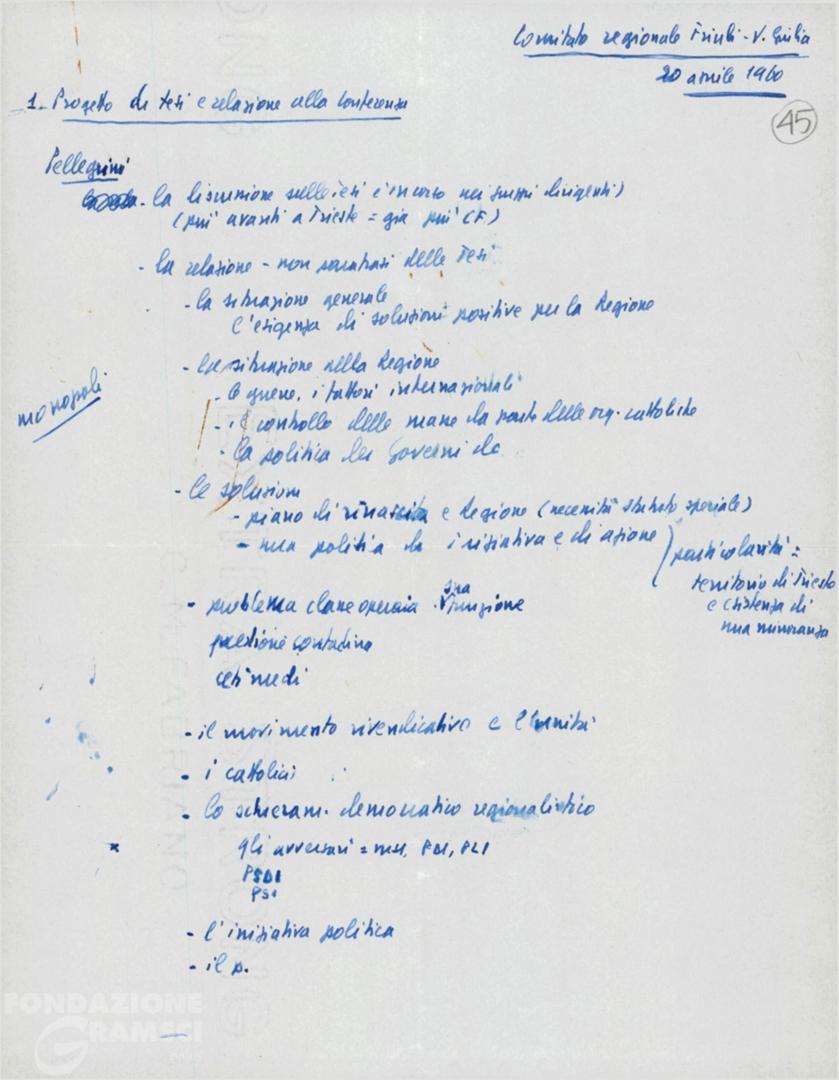 Comitato regionale Friuli-V. Giulia
20 aprile 1960
45
1- Progetto di tesi e relazione alla Conferenza
Pellegrini
- la discussione sulle Tesi è in corso nei gruppi dirigenti)
(più avanti a Trieste = già più CF)
- la relazione - non parafrasi delle Tesi
- la situazione generale
l'esigenza di soluzioni positive per la Regione
- la situazione nella Regione
monopoli
- le guerre, i fattori internazionali
- il controllo delle masse da parte delle org. cattoliche
- la politica dei Governi dc
- le soluzioni
- piano di rinascita e Regione (necessità statuto speciale)
- una politica di iniziativa e di azione
particolarità =
territorio di Trieste
e esistenza di
una minoranza
- problema classe operaia - sua funzione
questione contadina
ceti medi
- il movimento rivendicativo e l'unità
- i cattolici
- lo schieram. democratico regionalistico
x gli avversari = MSI, PDI, PLI
PSDI
PSI
- l'iniziativa politica
- il p.
FONDAZIONE
GRAMSCI